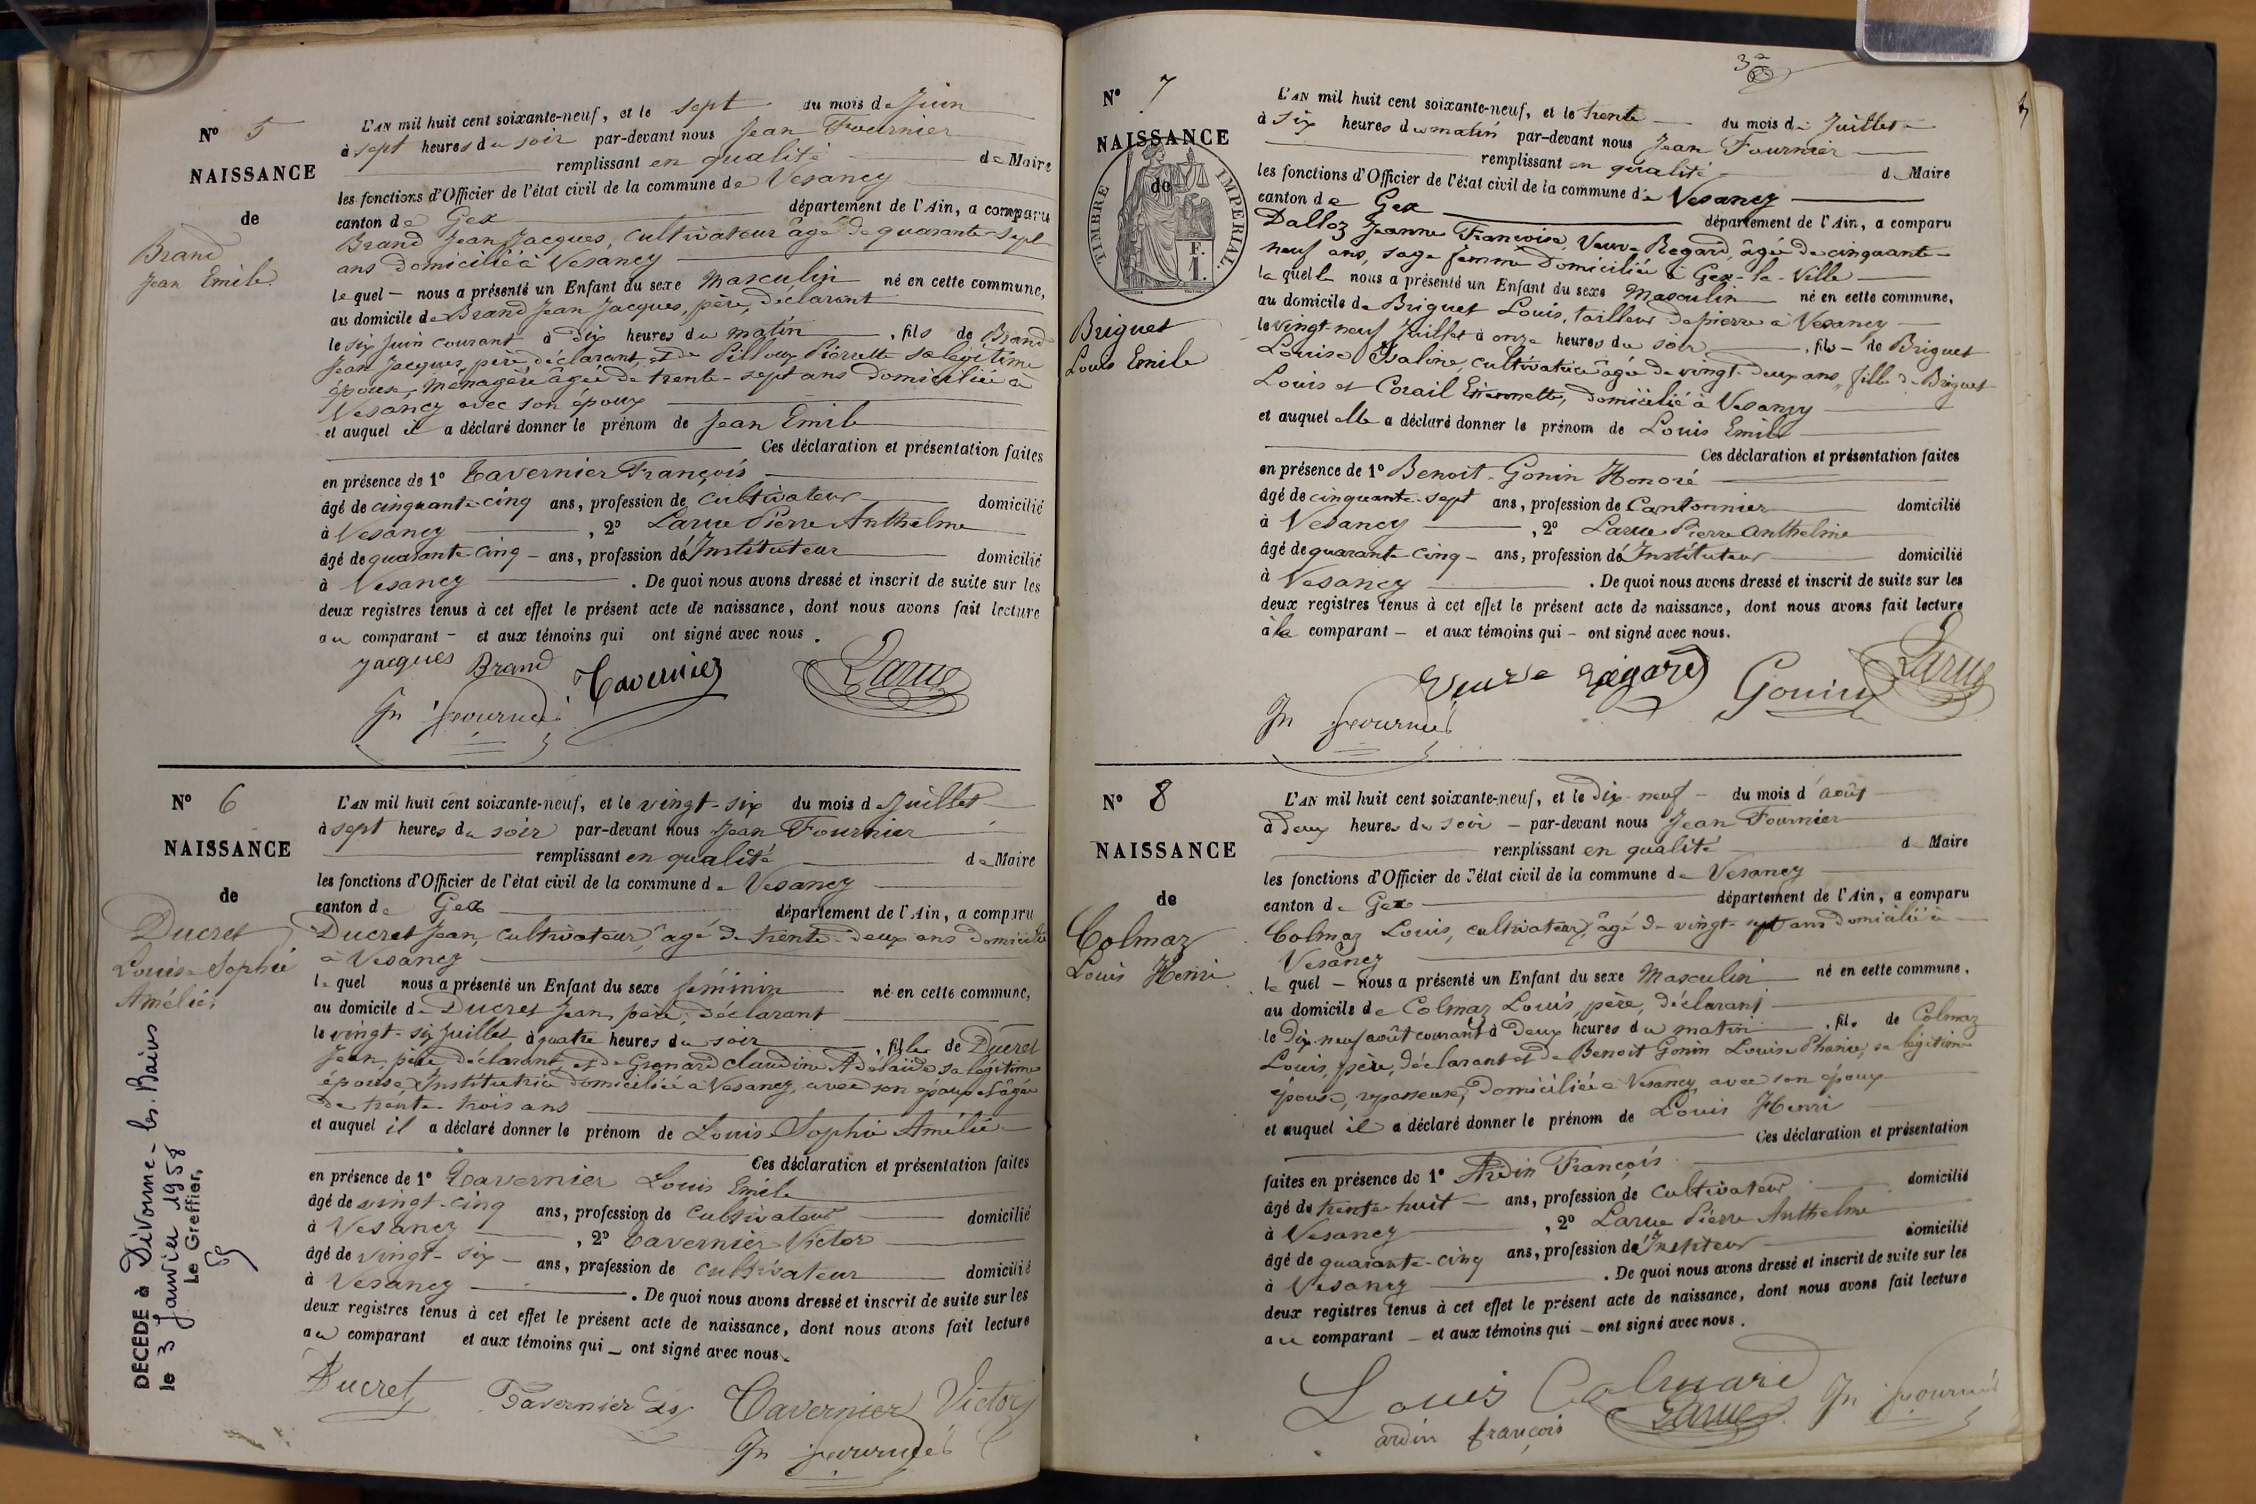 N° 5
NAISSANCE
de
Brand
Jean Emile
L'AN mil huit cent soixante-neuf, et le sept du mois de Juin
à sept heures du soir par-devant nous Jean Fournier
remplissant en qualité de Maire
les fonctions d'Officier de l'état civil de la commune de Vesancy
canton de Gex département de l'Ain, a comparu
Brand Jean Jacques, cultivateur âgé de quarante-sept
ans domicilié à Vesancy
lequel nous a présenté un Enfant du sexe masculin né en cette commune,
au domicile de Brand Jean Jacques, père, déclarant
le six juin courant à dix heures du matin, fils de Brand
Jean Jacques, père déclarant, et de Pilloux Pierrette sa légitime
épouse, ménagère âgée de trente-sept ans domiciliée à
Vesancy avec son époux
et auquel il a déclaré donner le prénom de Jean Emile
Ces déclaration et présentation faites
en présence de 1° Tavernier François
âgé de cinquante-cinq ans, profession de cultivateur domicilié
à Vesancy, 2° Larue Pierre Anthelme
âgé de quarante-cinq ans, profession d'Instituteur domicilié
à Vesancy. De quoi nous avons dressé et inscrit de suite sur les
deux registres tenus à cet effet le présent acte de naissance, dont nous avons fait lecture
au comparant et aux témoins qui ont signé avec nous.
Jacques Brand Tavernier Larue
Jn Fournier
N° 6
NAISSANCE
de
Ducret
Louise Sophie
Amélie
DECEDE à Divonne-les-Bains
le 3 Janvier 1958
Le Greffier,
L'AN mil huit cent soixante-neuf, et le vingt-six du mois de Juillet
à sept heures du soir par-devant nous Jean Fournier
remplissant en qualité de Maire
les fonctions d'Officier de l'état civil de la commune de Vesancy
canton de Gex département de l'Ain, a comparu
Ducret Jean, cultivateur, âgé de trente-deux ans domicilié
à Vesancy
lequel nous a présenté un Enfant du sexe féminin né en cette commune,
au domicile de Ducret Jean, père, déclarant
le vingt-six Juillet à quatre heures du soir, fille de Ducret
Jean, père déclarant, et de Grenard Claudine Adélaïde sa légitime
épouse, Institutrice domiciliée à Vesancy, avec son époux et âgée
de trente-trois ans
et auquel il a déclaré donner le prénom de Louise Sophie Amélie
Ces déclaration et présentation faites
en présence de 1° Tavernier Louis Emile
âgé de vingt-cinq ans, profession de cultivateur domicilié
à Vesancy, 2° Tavernier Victor
âgé de vingt-six ans, profession de cultivateur domicilié
à Vesancy. De quoi nous avons dressé et inscrit de suite sur les
deux registres tenus à cet effet le présent acte de naissance, dont nous avons fait lecture
au comparant et aux témoins qui ont signé avec nous.
Ducret Tavernier Ls Tavernier Victor
Jn Fournier
N° 7
NAISSANCE
de
TIMBRE IMPERIAL
1 F.
Briguet
Louis Emile
L'AN mil huit cent soixante-neuf, et le trente du mois de Juillet
à six heures du matin par-devant nous Jean Fournier
remplissant en qualité de Maire
les fonctions d'Officier de l'état civil de la commune de Vesancy
canton de Gex département de l'Ain, a comparu
Dalloz Jeanne Françoise, Veuve Regard, âgée de cinquante-
neuf ans, sage femme domiciliée à Gex-la-Ville
laquelle nous a présenté un Enfant du sexe masculin né en cette commune,
au domicile de Briguet Louis, tailleur de pierre à Vesancy
le vingt-neuf Juillet à onze heures du soir, fils de Briguet
Louise Isaline, cultivatrice âgée de vingt-deux ans, fille de Briguet
Louis et Corail Etiennette, domicilié à Vesancy
et auquel elle a déclaré donner le prénom de Louis Emile
Ces déclaration et présentation faites
en présence de 1° Benoit-Gonin Honoré
âgé de cinquante-sept ans, profession de Cantonnier domicilié
à Vesancy, 2° Larue Pierre Anthelme
âgé de quarante-cinq ans, profession d'Instituteur domicilié
à Vesancy. De quoi nous avons dressé et inscrit de suite sur les
deux registres tenus à cet effet le présent acte de naissance, dont nous avons fait lecture
à la comparant et aux témoins qui ont signé avec nous.
Veuve Régard Gonin Larue
Jn Fournier
N° 8
NAISSANCE
de
Colmaz
Louis Henri
L'AN mil huit cent soixante-neuf, et le dix-neuf du mois d'août
à deux heures du soir par-devant nous Jean Fournier
remplissant en qualité de Maire
les fonctions d'Officier de l'état civil de la commune de Vesancy
canton de Gex département de l'Ain, a comparu
Colmaz Louis, cultivateur, âgé de vingt-sept ans domicilié à
Vesancy
lequel nous a présenté un Enfant du sexe masculin né en cette commune,
au domicile de Colmaz Louis, père, déclarant
le dix-neuf août courant à deux heures du matin, fils de Colmaz
Louis, père, déclarant et de Benoit Gonin Louise, sa légitime
épouse, repasseuse, domiciliée à Vesancy avec son époux
et auquel il a déclaré donner le prénom de Louis Henri
Ces déclaration et présentation
faites en présence de 1° Ardin François
âgé de trente-huit ans, profession de cultivateur domicilié
à Vesancy, 2° Larue Pierre Anthelme
âgé de quarante-cinq ans, profession d'Instituteur domicilié
à Vesancy. De quoi nous avons dressé et inscrit de suite sur les
deux registres tenus à cet effet le présent acte de naissance, dont nous avons fait lecture
au comparant et aux témoins qui ont signé avec nous.
Louis Colmard Jn Fournier
ardin françois Larue